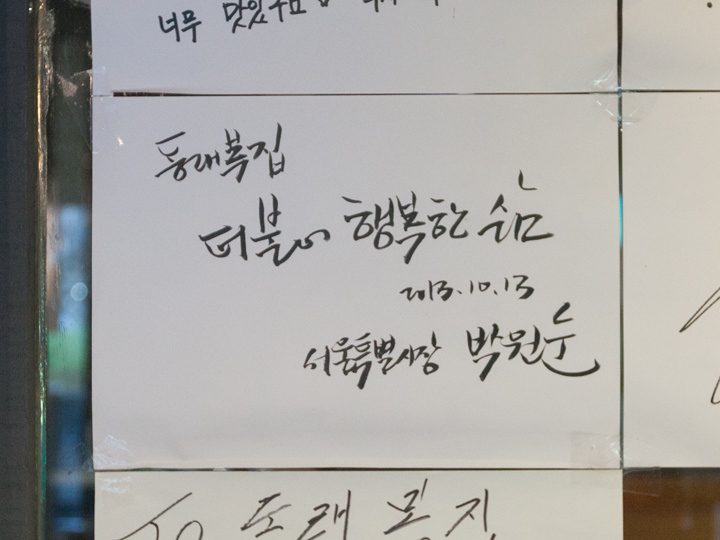 너무 맛있
동래복집
더불어 행복한 삶
2013.10.13
서울특별시장 박원순
To 동래복집